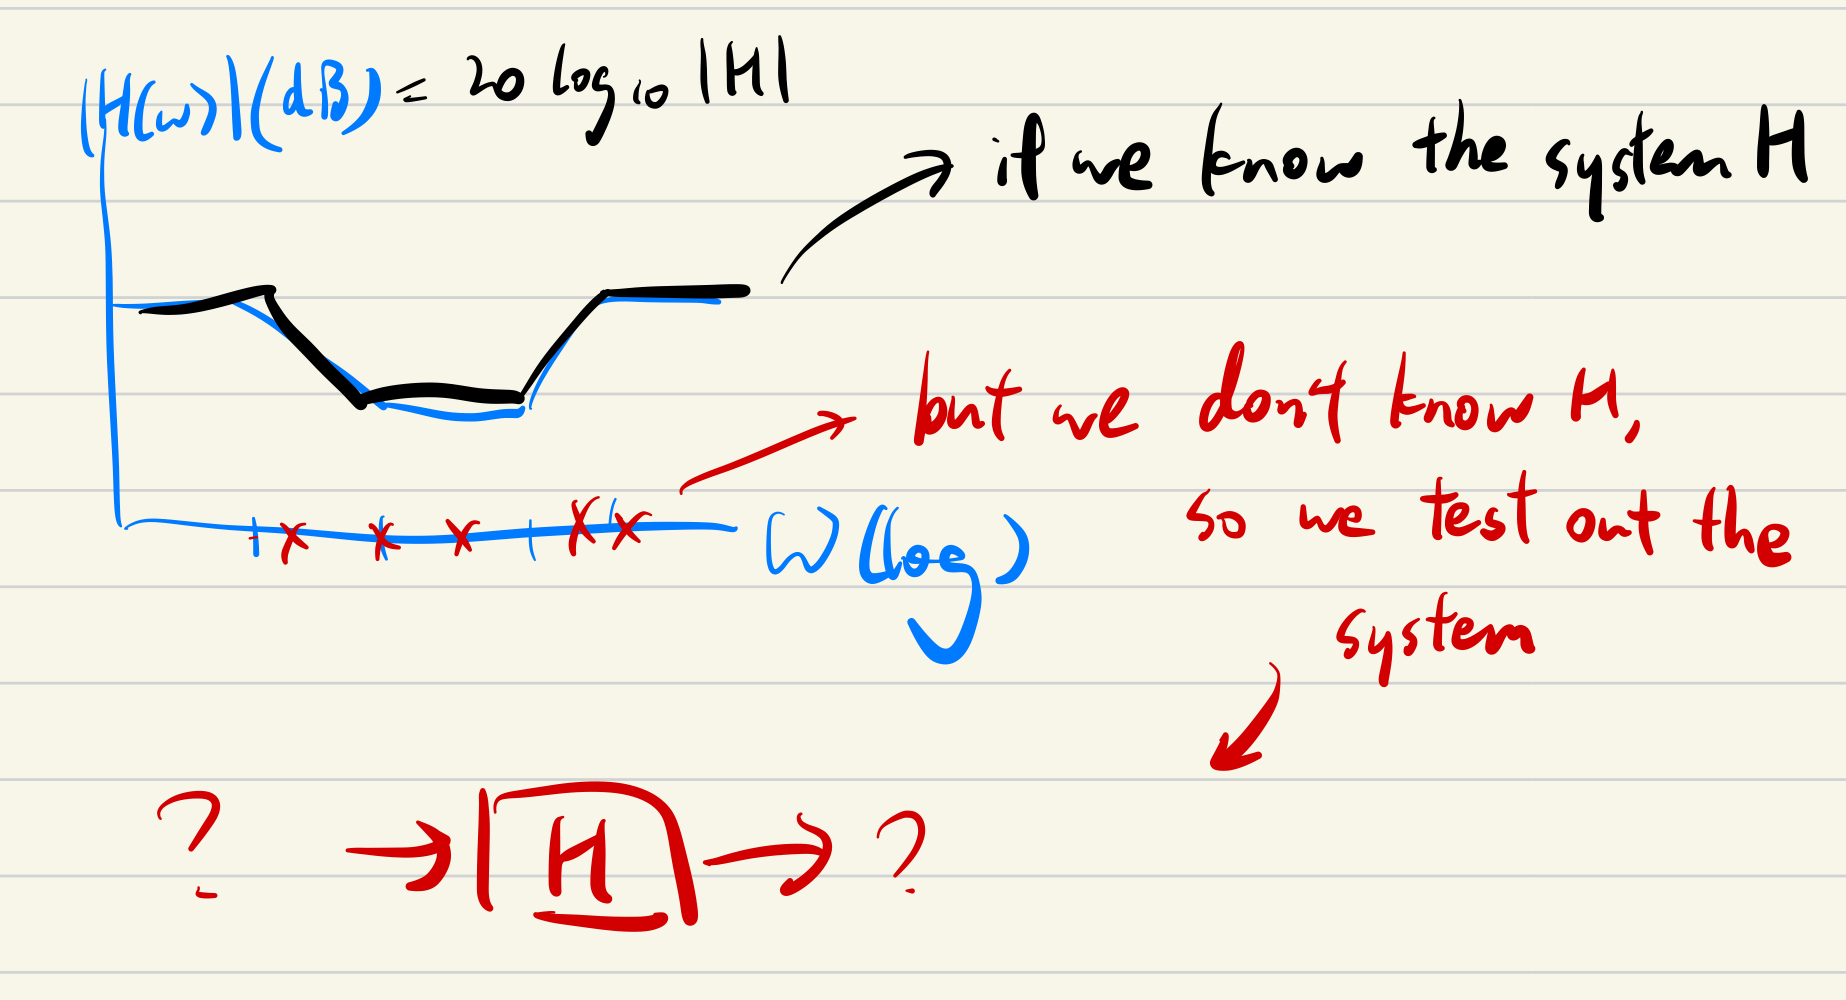 |H(ω)|(dB) = 20 log₁₀ |H|
if we know the system H
but we don't know H,
so we test out the
system
ω (log)
? → H → ?